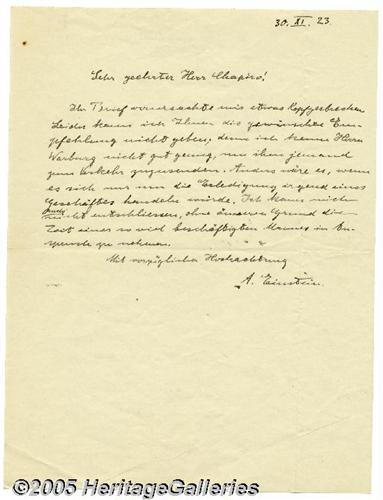 30. XI. 23.
Sehr geehrter Herr Chapiro!
Ihr Brief verursachte mir etwas Kopfzerbrechen
Leider kann ich Ihnen die gewünschte Em-
pfehlung nicht geben, denn ich kenne Herrn
Warburg nicht gut genug, um ihm jemand
zum Verkehr zuzusenden. Anders wäre es, wenn
es sich nur um die Erledigung irgend eines
Geschäftes handeln würde. Ich kann mich
nicht entschliessen, ohne äusseren Grund die
Zeit eines so viel beschäftigten Mannes in An-
spruch zu nehmen.
Mit vorzüglicher Hochachtung
A. Einstein.
©2005 HeritageGalleries